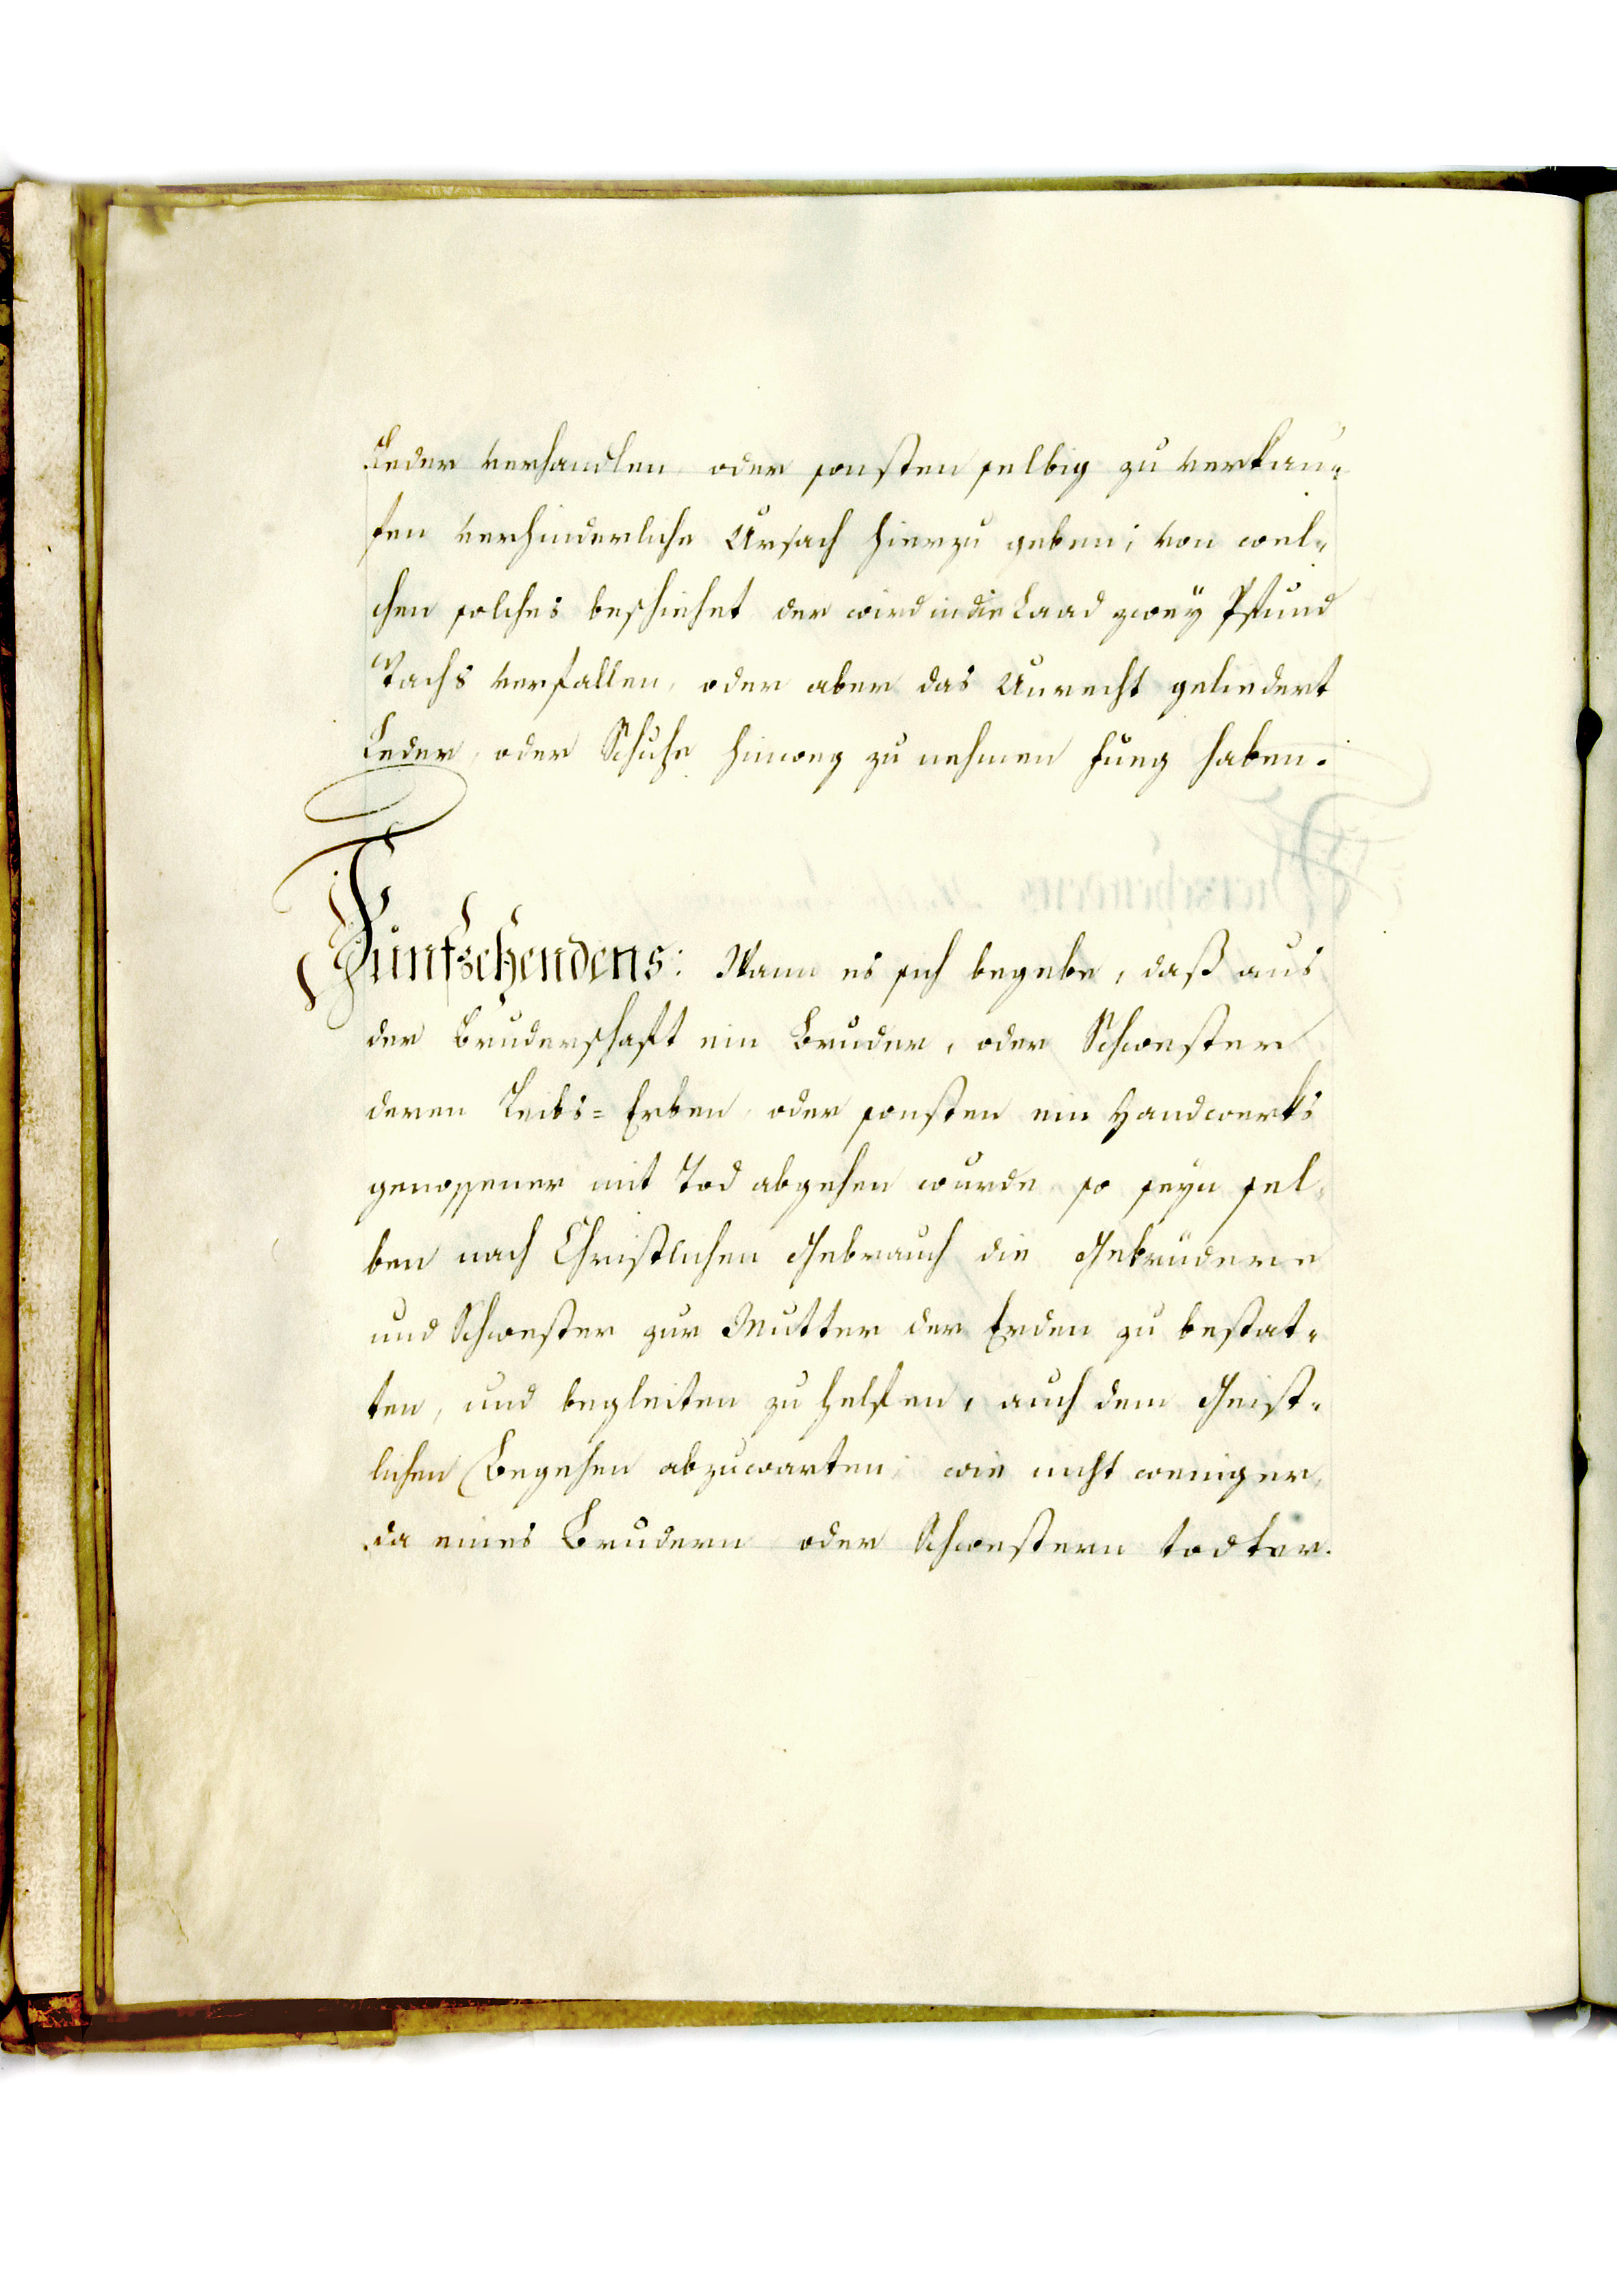 Leder verhandlen oder sonsten selbig zu verkau=
fen verhinderliche Ursach hierzu geben; von wel=
chen solches beschiehet der wird in die Laad zwey Pfund
Wachs verfallen, oder aber das Unrecht geliedert
Leder, oder Schuhe hinweg zu nehmen fueg haben.
Fünfzehendens: Wann es sich begebe, daß aus
der Bruderschaft ein Bruder, oder Schwester
deren Leibs= Erben oder sonsten ein Handwerks
genossener mit Tod abgehen wurde so seyn sel=
ben nach Christlichen Gebrauch die Gebrüdere
und Schwester zur Mutter der Erden zu bestat=
ten, und begleiten zu helfen, auch dem Geist=
lichen Begehen abzuwarten; wie nicht weniger
da eines Brudern oder Schwestern todter.